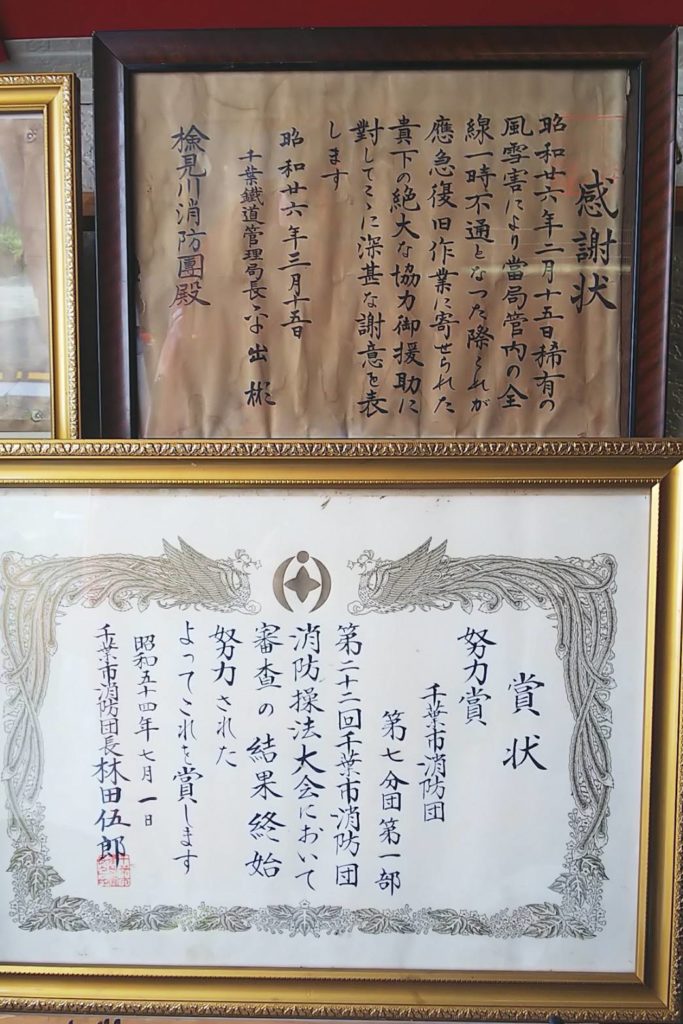 感謝状
昭和廿六年二月十五日稀有の
風雪害により當局管内の全
線一時不通となつた際これが
應急復旧作業に寄せられた
貴下の絶大な協力御援助に
対してここに深甚な謝意を表
します
昭和廿六年三月十五日
千葉鐵道管理局長
出
彬
検見川消防團殿
賞状
努力賞
千葉市消防団
第七分団第一部
第二十二回千葉市消防団
消防操法大会において
審査の結果終始
努力された
よってこれを賞します
昭和五十四年七月一日
千葉市消防団長林田伍郎